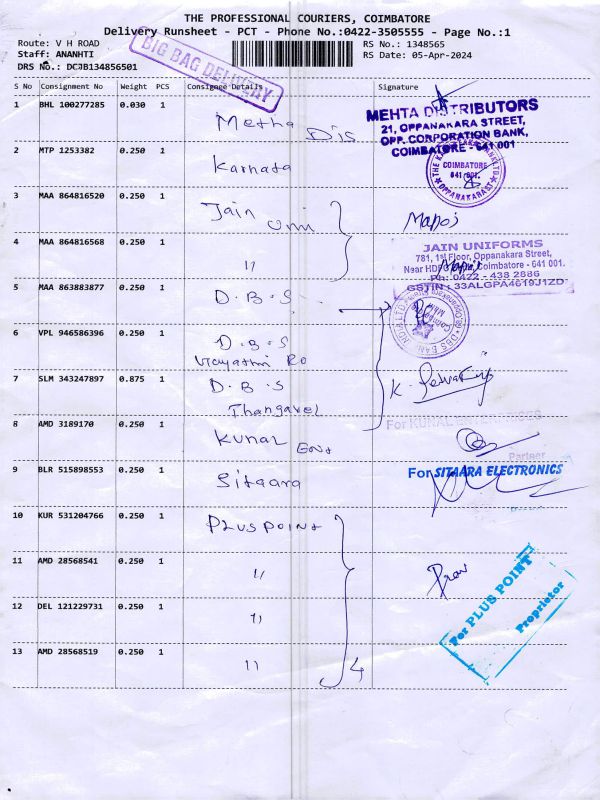 THE PROFESSIONAL COURIERS, COIMBATORE
Delivery Runsheet - PCT - Phone No.:0422-3505555 - Page No.:1
Route: V H ROAD
RS No.: 1348565
Staff: ANANHTI
RS Date: 05-Apr-2024
DRS No.: DCJB134856501
BIG BAG DELIVERY
S No Consignment No Weight PCS Consignee Details Signature
1 BHL 100277285 0.030 1 Metha Dis
MEHTA DISTRIBUTORS
21, OPPANAKARA STREET,
OPP. CORPORATION BANK,
COIMBATORE - 641 001
2 MTP 1253382 0.250 1 Karnata
COIMBATORE
641 001
OPPANAKARA ST
3 MAA 864816520 0.250 1 Jain Uni Manoj
4 MAA 864816568 0.250 1 "
JAIN UNIFORMS
781, 1st Floor, Oppanakara Street,
Near HDFC Coimbatore - 641 001.
Ph: 0422 - 438 2886
GSTIN : 33ALGPA4619J1ZD
5 MAA 863883877 0.250 1 D.B.S
DBS BANK INDIA LTD
6 VPL 946586396 0.250 1 D.B.S
7 SLM 343247897 0.875 1 D.B.S
Thangavel
K. Selvakumar
8 AMD 3189170 0.250 1 Kunal Ent
For KUNAL ENTERPRISES
Partner
9 BLR 515898553 0.250 1 Sitaara
For SITAARA ELECTRONICS
10 KUR 531204766 0.250 1 PLUS POINT
11 AMD 28568541 0.250 1 "
12 DEL 121229731 0.250 1 "
For PLUS POINT
Proprietor
13 AMD 28568519 0.250 1 " 4